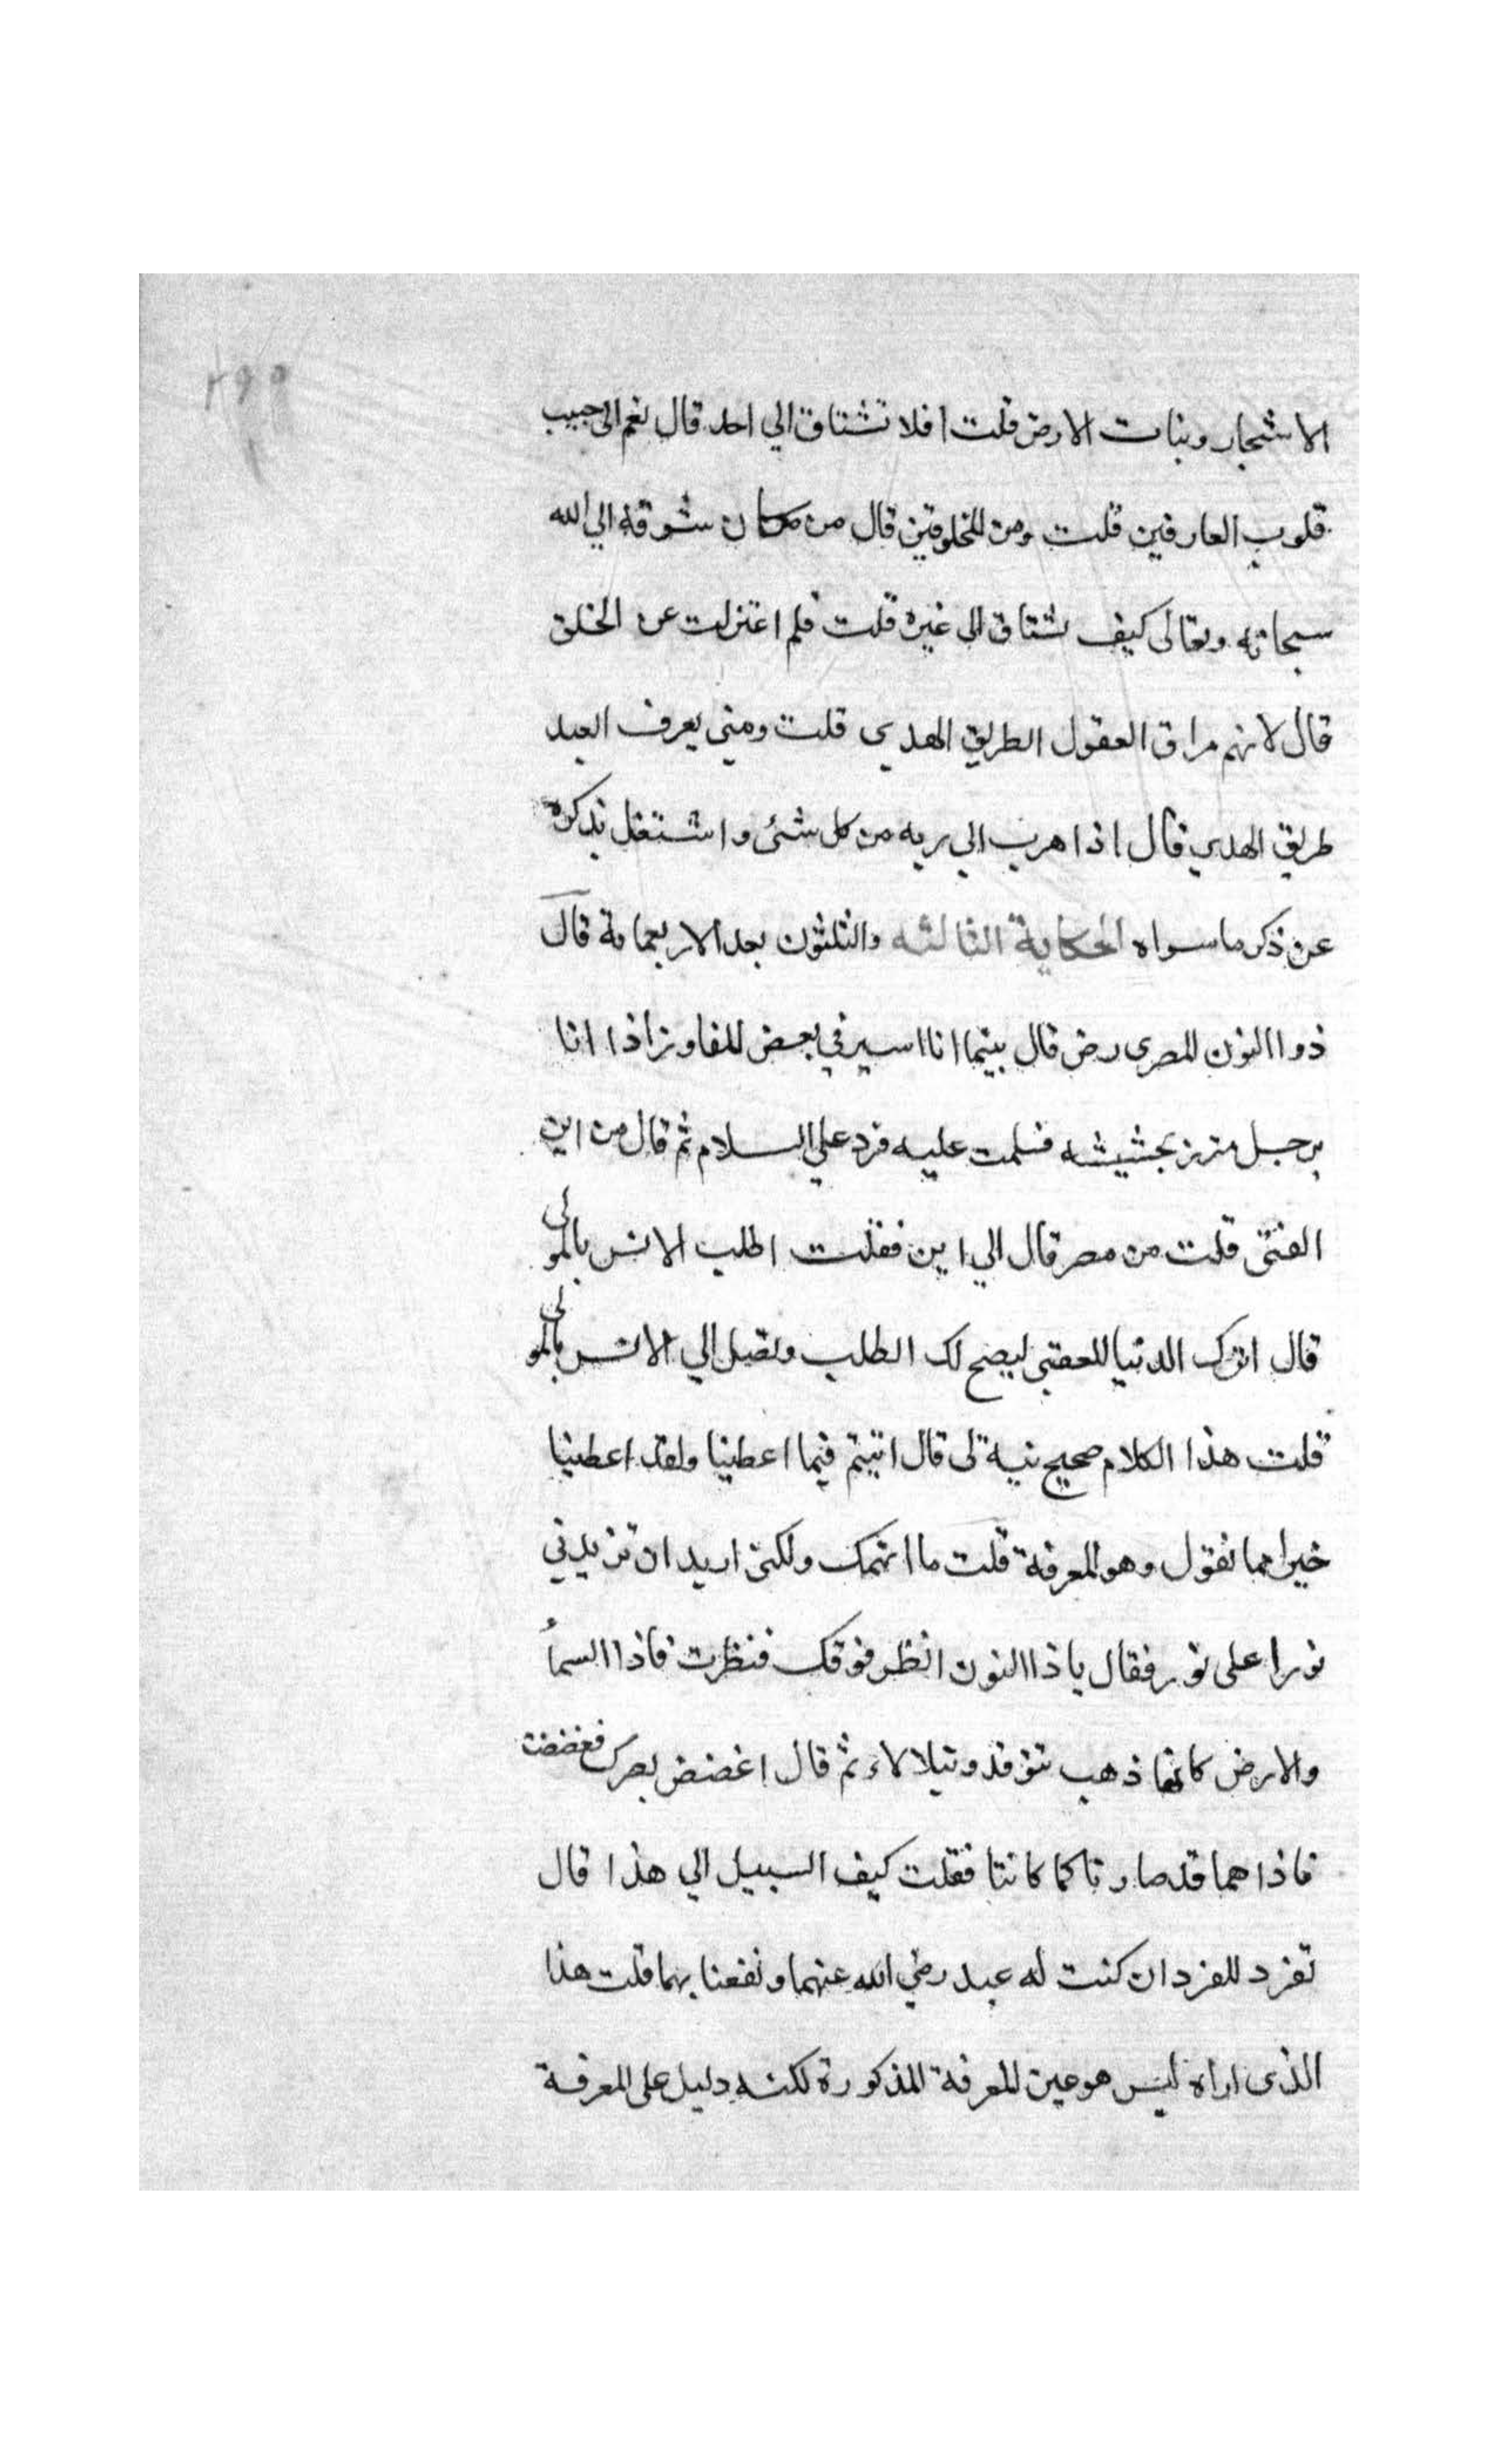 الاشجار وبنات الارض قلت افلا تشتاق الي احد قال نعم الى حبيب
قلوب العارفين قلت ومن المخلوقين قال من كان شوقه الي الله
سبحانه وتعالى كيف يشتاق الى غيره قلت فلم اعتزلت عن الخلق
قال لانهم سراق العقول الطريق الهدي قلت ومتى يعرف العبد
طريق الهدي قال اذا هرب الي ربه من كل شئ واشتغل بذكره
عن ذكر ما سواه الحكاية الثالثه والثلثون بعد الاربعماية قال
ذو االنون المصرى رض قال بينما انا اسير في بعض المفاوز اذا انا
برجل متزر بحشيشه فسلمت عليه فرد علي السلام ثم قال من اين
الفتى قلت من مصر قال الي اين فقلت اطلب الانس بالمولى
قال اترك الدنيا للعقبى ليصح لك الطلب وتصل الي الانس بالمولى
قلت هذا الكلام صحيح بينه لى قال اتيتم فيما اعطينا ولقد اعطينا
خيرا مما تقول وهو المعرفة قلت ما اتهمك ولكنى اريد ان تزيدني
نورا على نور فقال يا ذا االنون انظر فوقك فنظرت فاذا السمأ
والارض كانها ذهب تتوقد وتيلالاء ثم قال اغضض بصرك فغضضت
فاذا هما قد صارتا كما كانتا فقلت كيف السبيل الي هذا قال
تفرد للفرد ان كنت له عبد رضي الله عنهما ونفعنا بهما قلت هذا
الذى اراه ليس هو عين المعرفة المذكورة لكنه دليل على المعرفة